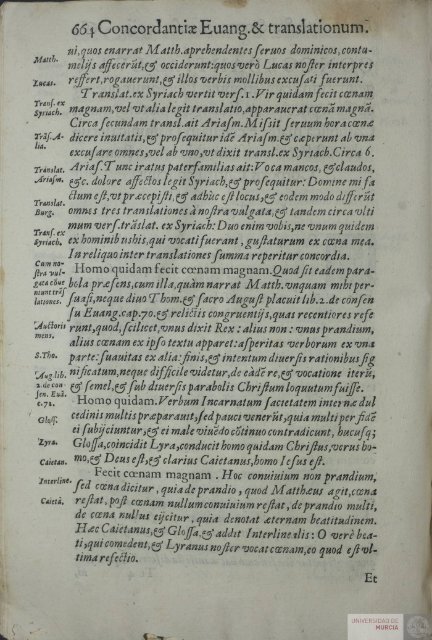 664 Concordantiæ Euang. & translationum.
ui, quos enarrat Matth. aprehendentes seruos dominicos, contu-
Matth.
melijs affecerūt, & occiderunt: quos verò Lucas noster interpres
Lucas.
reffert, rogauerunt, & illos verbis mollibus excusati fuerunt.
Translat. ex Syriach vertit vers. 1. Vir quidam fecit cœnam
Trans. ex Syriach.
magnam, vel vt alia legit translatio, apparauerat cœnā magnā.
Circa secundam transl. ait Ariasm. Misit seruum hora cœnæ
Trās. A-
lia.
dicere inuitatis, & prosequitur idē Ariasm. & cæperunt ab vna
excusare omnes, vel ab vno, vt dixit transl. ex Syriach. Circa 6.
Translat.
Ariasm.
Arias. Tunc iratus paterfamilias ait: Voca mancos, & claudos,
&c. dolore affectos legit Syriach, & prosequitur: Domine mi fa
ctum est, vt præcepisti, & adhuc est locus, & eodem modo differūt
Translat.
Burg.
omnes tres translationes à nostra vulgata, & tandem circa vlti
mum vers. trāslat. ex Syriach: Duo enim vobis, ne vnum quidem
Trans. ex
Syriach.
ex hominibus his, qui vocati fuerant, gustaturum ex cœna mea.
In reliquo inter translationes summa reperitur concordia.
Cum no-
stra vul-
gata cōue
niunt trās
lationes.
Homo quidam fecit cœnam magnam. Quod sit eadem para-
bola præsens, cum illa, quàm narrat Matth. vnquam mihi per-
suasi, neque diuo Thom. & sacro August placuit lib. 2. de consen
su Euang. cap. 70. & relictis congruentijs, quas recentiores refe
Auctoris
mens.
runt, quod, scilicet, vnus dixit Rex: alius non: vnus prandium,
alius cœnam ex ipso textu apparet: asperitas verborum ex vna
S. Tho.
parte: suauitas ex alia: finis, & intentum diuersis rationibus sig
nificatum, neque difficile videtur, de eadē re, & vocatione iterū,
Aug. lib.
2. de con
sen. Euā.
c. 72.
& semel, & sub diuersis parabolis Christum loquutum fuisse.
Homo quidam. Verbum Incarnatum sacietatem internæ dul
cedinis multis præparauit, sed pauci venerūt, quia multi per fidē
Gloss.
ei subijciuntur, & ei male viuēdo cōtinuo contradicunt, hucusq;
Lyra.
Glossa, coincidit Lyra, conducit homo quidam Christus, verus ho-
mo, & Deus est, & clarius Caietanus, homo Iesus est.
Caietan.
Fecit cœnam magnam. Hoc conuiuium non prandium,
Interline.
sed cœna dicitur, quia de prandio, quod Matthæus agit, cœna
Caietā.
restat, post cœnam nullum conuiuium restat, de prandio multi,
de cœna nullus eijcitur, quia denotat æternam beatitudinem.
Hæc Caietanus, & Glossa, & addit Interlinealis: O verè bea-
ti, qui comedent, & Lyranus noster vocat cœnam, eo quod est vl-
tima refectio.
Et
UNIVERSIDAD DE
MURCIA